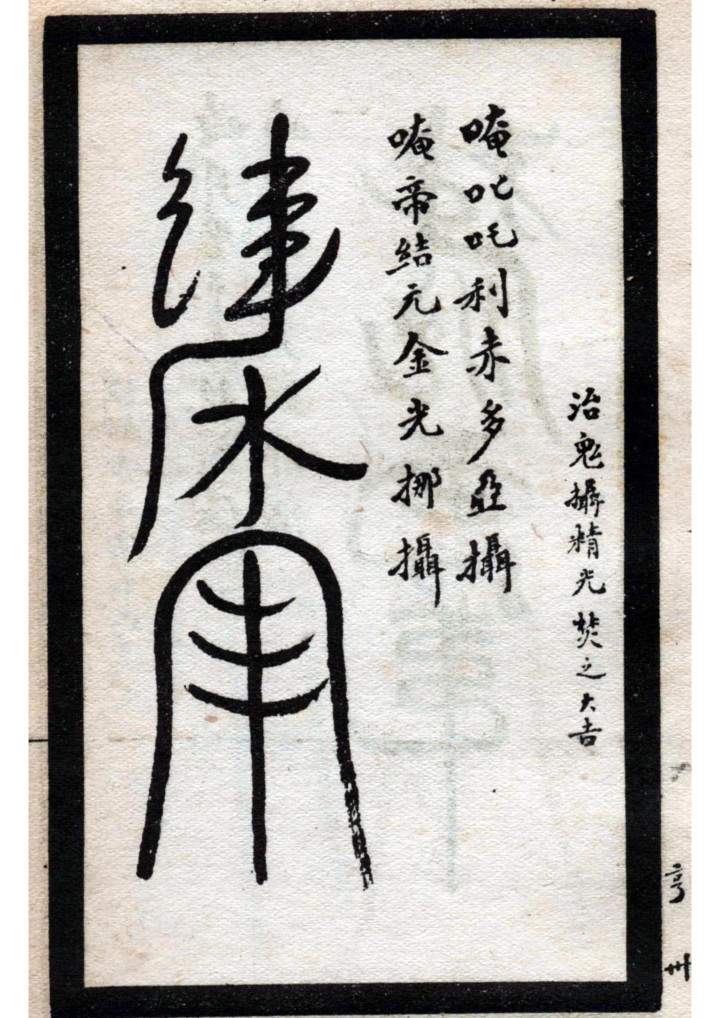 治鬼攝精光焚之大吉
唵吡吒利赤多亞攝
唵帝结元金光挪攝
亨
卅